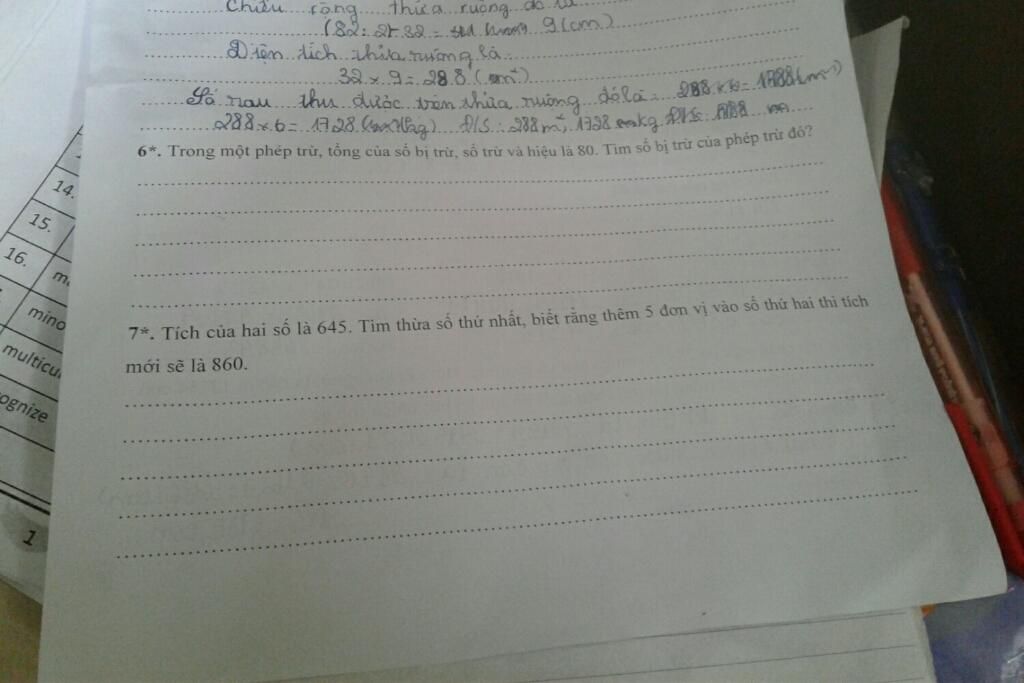 Chiều rộng thửa ruộng đó là
(82: 2 - 32 = 9 (cm)
Diện tích thửa ruộng là
32 x 9 = 288 (m²)
Số rau thu được trên thửa ruộng đó là =
288 x 6 = 1728 (kg) Đ/S: 288m², 1728 kg
6*. Trong một phép trừ, tổng của số bị trừ, số trừ và hiệu là 80. Tìm số bị trừ của phép trừ đó?
7*. Tích của hai số là 645. Tìm thừa số thứ nhất, biết rằng thêm 5 đơn vị vào số thứ hai thì tích
mới sẽ là 860.
14.
15.
16.
mino
multicu
ognize
1